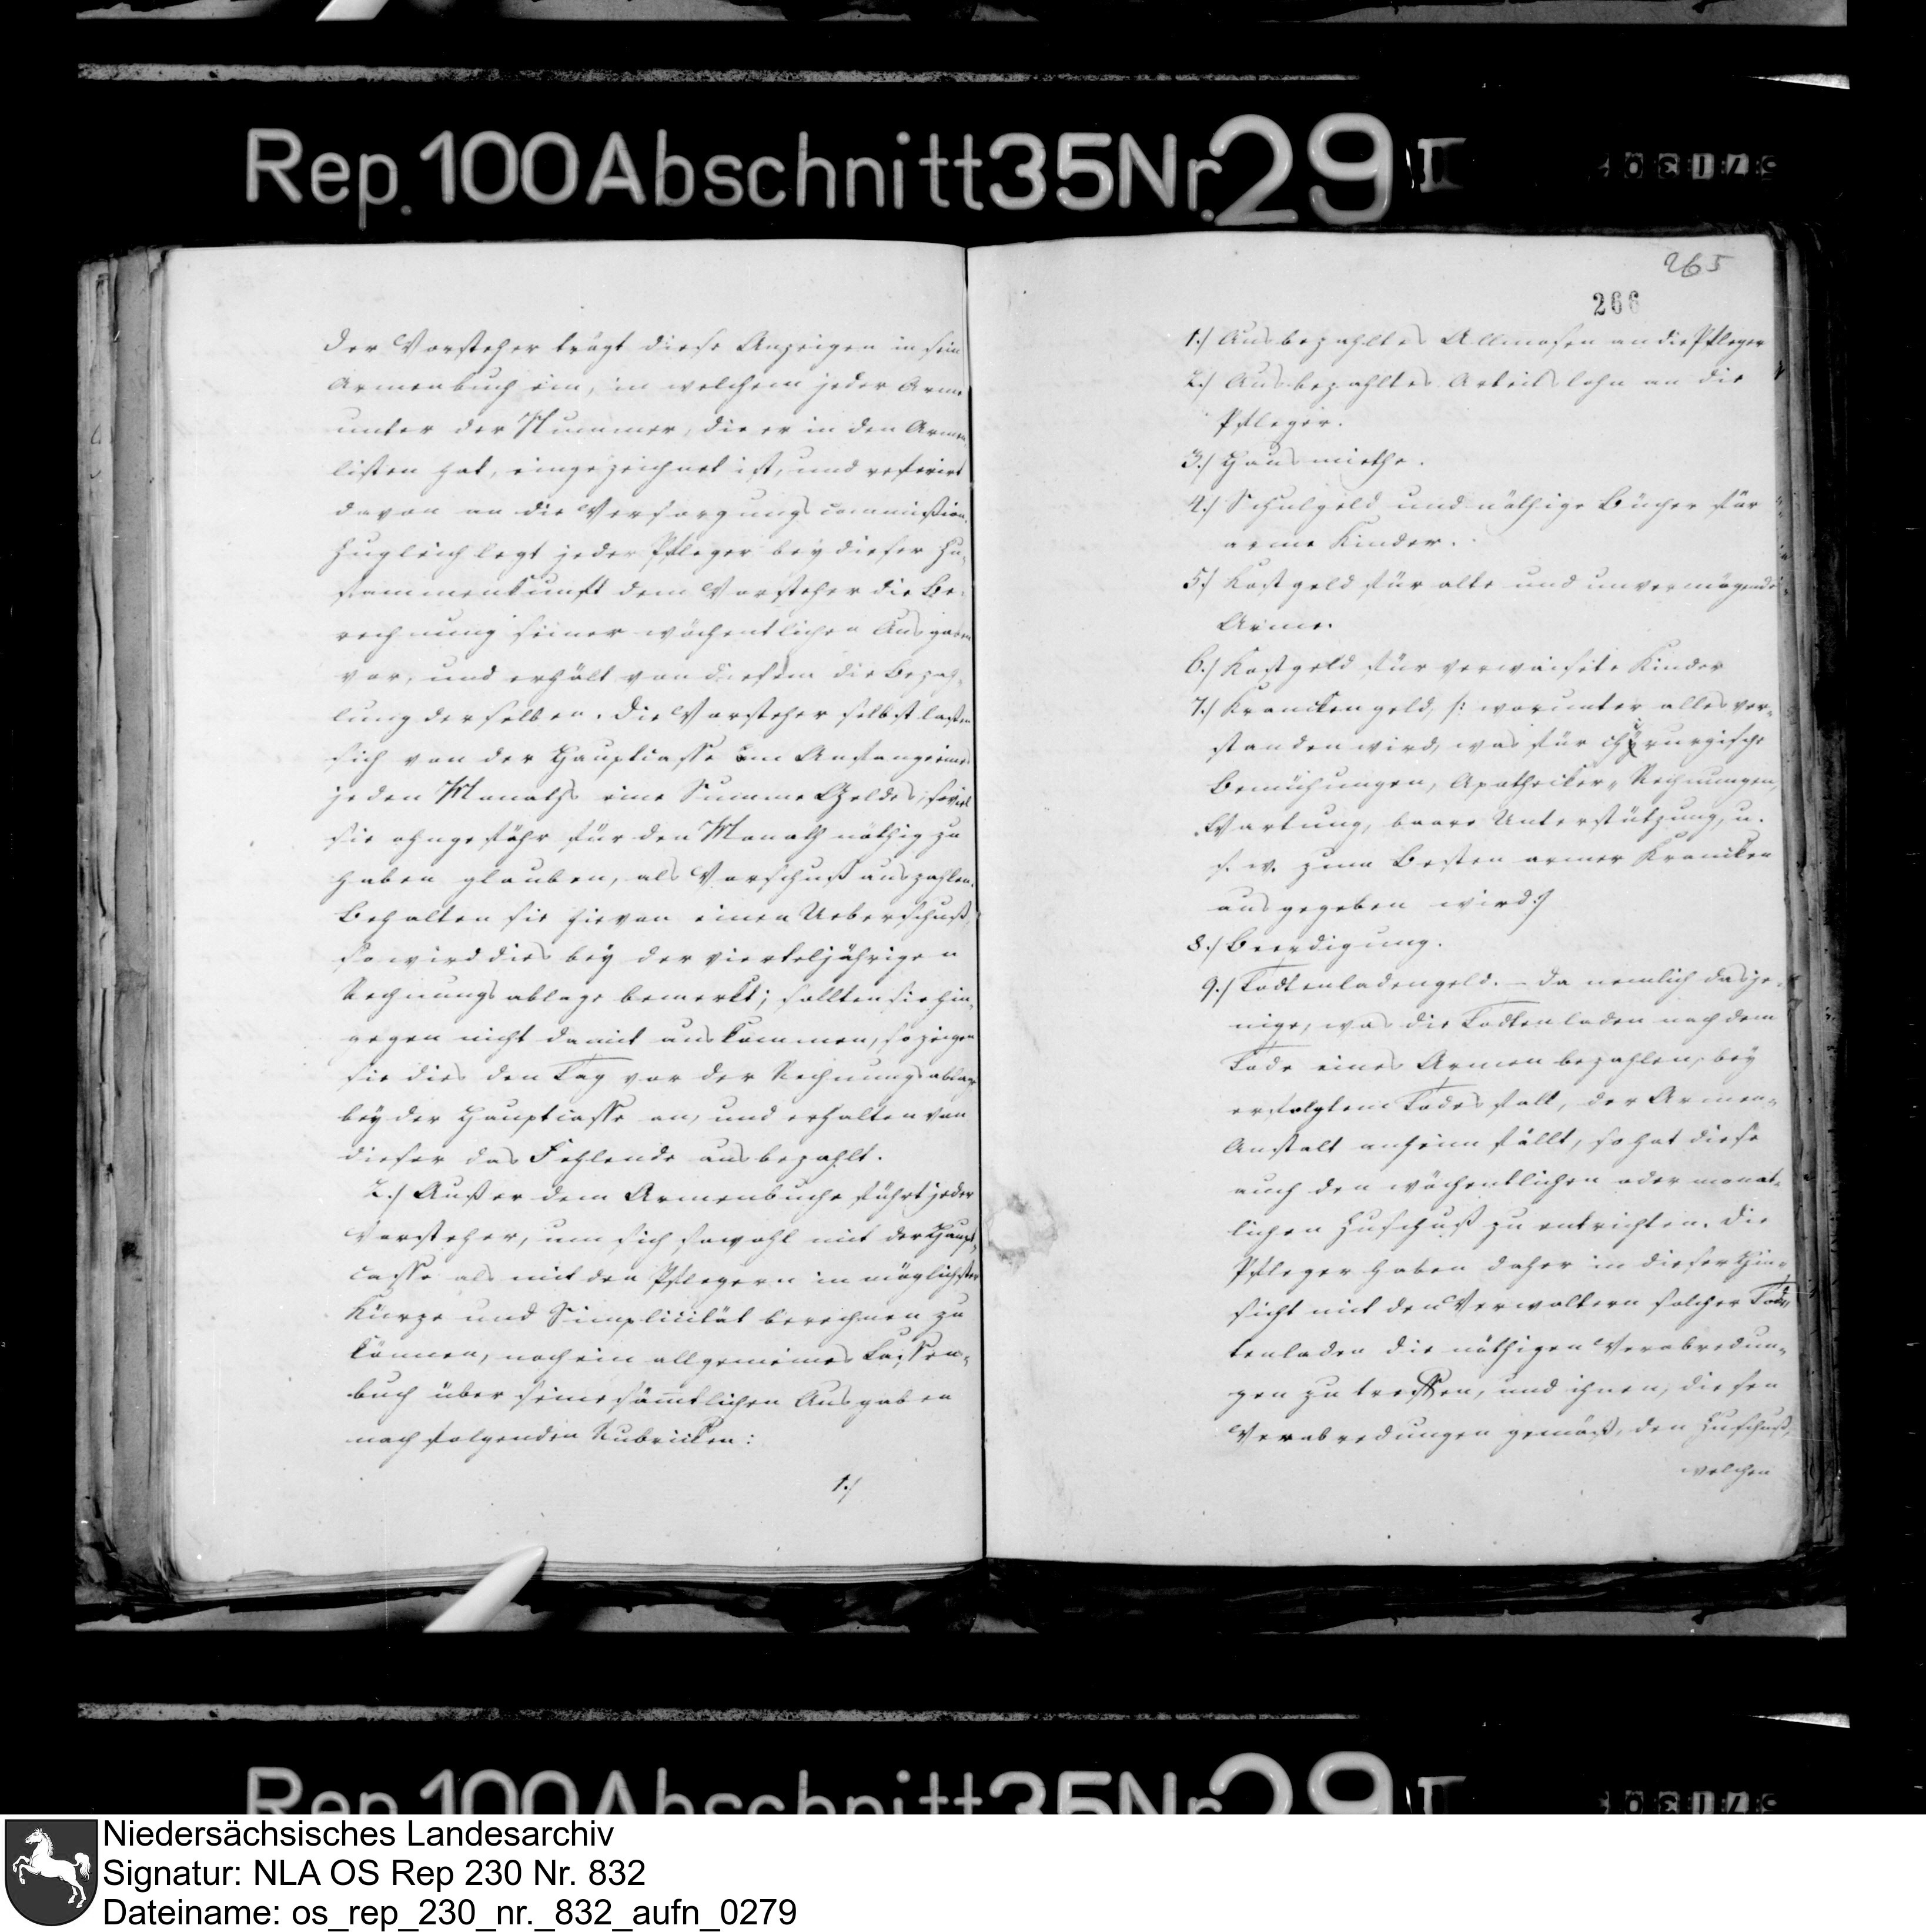 Rep. 100 Abschnitt 35 Nr. 29 I
Der Vorsteher trägt diese Anzeigen in sein
Armenbuch ein, in welchem jeder Arme
unter der Nummer, die er in den Armen
listen hat, eingezeichnet ist, und referirt
davon an die Versorgungscommißion.
Zugleich legt jeder Pfleger bey dieser Zu-
sammenkunft dem Vorsteher die Be-
rechnung seiner wöchentlichen Ausgaben
vor, und erhält von diesem die Bezah-
lung derselben. Die Vorsteher selbst laßen
sich von der Hauptcasse am Anfange eines
jeden Monaths eine Summe Geldes, soviel
sie ohngefähr für den Monath nöthig zu
haben glauben, als Vorschuß auszahlen.
Behalten sie hievon einen Ueberschuß,
so wird dies bey der vierteljährigen
Rechnungsablage bemerkt; sollten sie hin-
gegen nicht damit auskommen, so zeigen
sie dies den Tag vor der Rechnungsablage
bey der Hauptcasse an, und erhalten von
dieser das Fehlende ausbezahlt.
2.) Außer dem Armenbuche führt jeder
Vorsteher, um sich sowohl mit der Haupt-
casse als mit den Pflegern in möglichster
Kürze und Simplicität berechnen zu
können, noch ein allgemeines Cassen-
buch über seine sämtlichen Ausgaben
nach folgenden Rubricken:
1.)
265
266
1.) Ausbezahltes Allmosen an die Pfleger
2.) Ausbezahltes Arbeitslohn an die
Pfleger.
3.) Hausmiethe.
4.) Schulgeld und nöthige Bücher für
arme Kinder.
5.) Kostgeld für alte und unvermögende
Arme.
6.) Kostgeld für verwaisete Kinder
7.) Kranckengeld, /: worunter alles ver-
standen wird, was für chirurgische
Bemühungen, Apotheker-Rechnungen,
Wartung, baare Unterstützung, u.
s. w. zum Besten armer Krancken
ausgegeben wird :/
8.) Beerdigung.
9.) Todtenladengeld. - Da nemlich dasje-
nige, was die Todtenladen nach dem
Tode eines Armen bezahlen, bey
erfolgtem Todesfall, der Armen-
Anstalt anheim fällt, so hat diese
auch den wöchentlichen oder monat-
lichen Zuschuß zu entrichten. Die
Pfleger haben daher in dieser Hin-
sicht mit den Verwaltern solcher Tod-
tenladen die nöthigen Verabredun-
gen zu treffen, und ihnen, diesen
Verabredungen gemäß, den Zuschuß,
welchen
Rep. 100 Abschnitt 35 Nr. 29 I
Niedersächsisches Landesarchiv
Signatur: NLA OS Rep 230 Nr. 832
Dateiname: os_rep_230_nr._832_aufn_0279